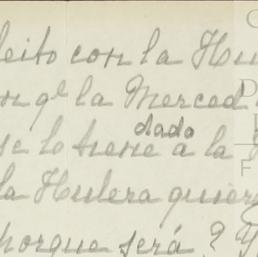 leito con la Hu
on qe la Merced
dado
se lo tiene a la
la Hulera quier
porque será? Y